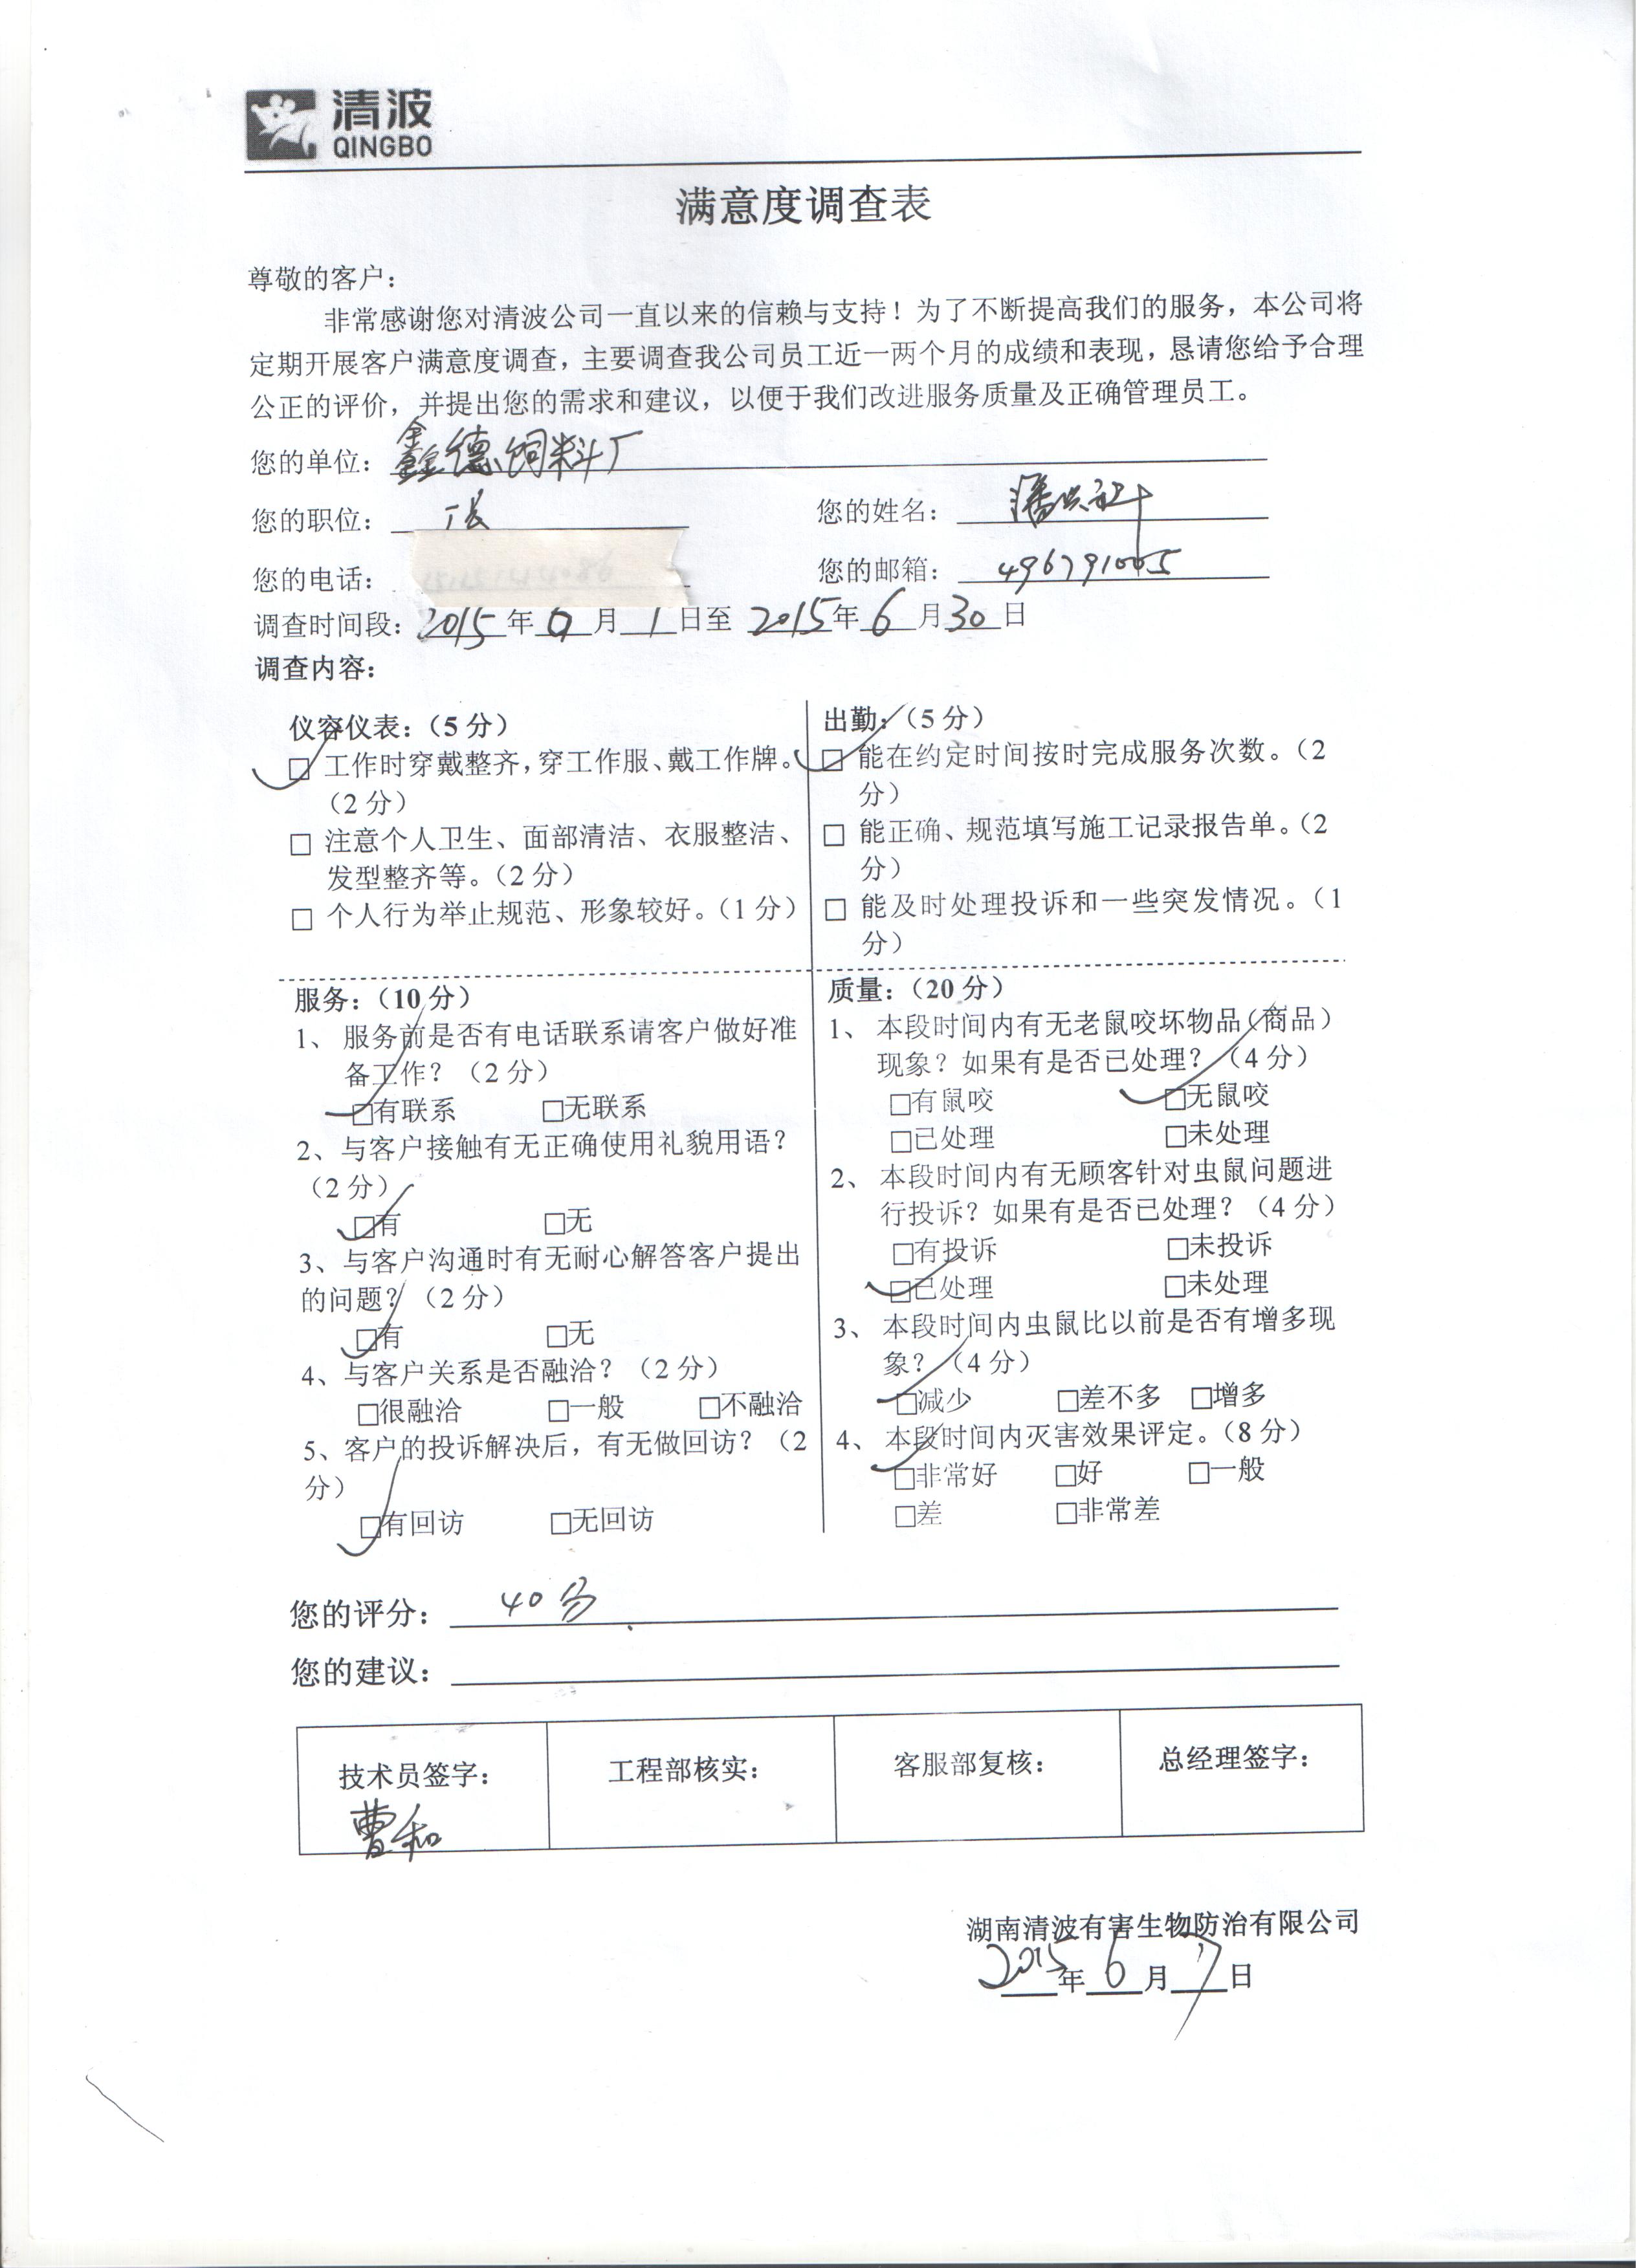 清波
QINGBO
满意度调查表
尊敬的客户：
非常感谢您对清波公司一直以来的信赖与支持！为了不断提高我们的服务，本公司将
定期开展客户满意度调查，主要调查我公司员工近一两个月的成绩和表现，恳请您给予合理
公正的评价，并提出您的需求和建议，以便于我们改进服务质量及正确管理员工。
您的单位：鑫德饲料厂
您的职位：厂长 您的姓名：潘
您的电话： 您的邮箱：496791005
调查时间段：2015年6月1日至2015年6月30日
调查内容：
仪容仪表：（5分）
☑ 工作时穿戴整齐，穿工作服、戴工作牌。
（2分）
□ 注意个人卫生、面部清洁、衣服整洁、
发型整齐等。（2分）
□ 个人行为举止规范、形象较好。（1分）
出勤：（5分）
☑ 能在约定时间按时完成服务次数。（2
分）
□ 能正确、规范填写施工记录报告单。（2
分）
□ 能及时处理投诉和一些突发情况。（1
分）
服务：（10分）
1、服务前是否有电话联系请客户做好准
备工作？（2分）
☑有联系 □无联系
2、与客户接触有无正确使用礼貌用语？
（2分）
☑有 □无
3、与客户沟通时有无耐心解答客户提出
的问题？（2分）
☑有 □无
4、与客户关系是否融洽？（2分）
□很融洽 □一般 □不融洽
5、客户的投诉解决后，有无做回访？（2
分）
☑有回访 □无回访
质量：（20分）
1、本段时间内有无老鼠咬坏物品（商品）
现象？如果有是否已处理？（4分）
□有鼠咬 ☑无鼠咬
□已处理 □未处理
2、本段时间内有无顾客针对虫鼠问题进
行投诉？如果有是否已处理？（4分）
□有投诉 □未投诉
☑已处理 □未处理
3、本段时间内虫鼠比以前是否有增多现
象？（4分）
☑减少 □差不多 □增多
4、本段时间内灭害效果评定。（8分）
☑非常好 □好 □一般
□差 □非常差
您的评分：40分
您的建议：
技术员签字： 工程部核实： 客服部复核： 总经理签字：
曹和
湖南清波有害生物防治有限公司
2015年6月7日